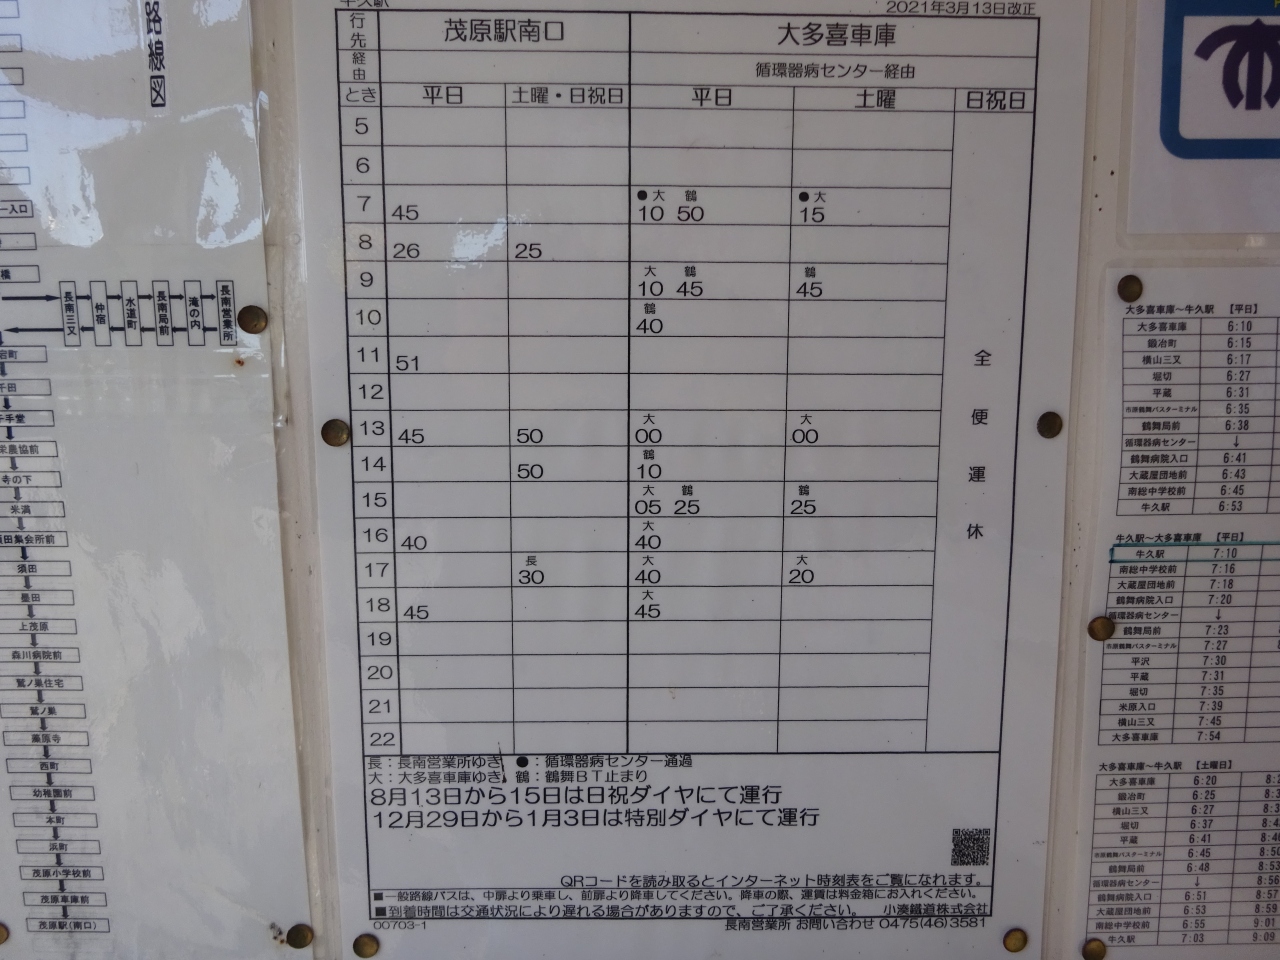 路線図
牛久駅
2021年3月13日改正
行先 茂原駅南口 大多喜車庫
経由 循環器病センター経由
とき 平日 土曜・日祝日 平日 土曜 日祝日
5
6
●大 鶴 ●大
7 45 10 50 15
8 26 25
大 鶴 鶴
9 10 45 45
鶴
10 40
11 51
12
大 大
13 45 50 00 00
鶴
14 50 10
大 鶴 鶴
15 05 25 25
大
16 40 40
長 大 大
17 30 40 20
大
18 45 45
19
20
21
22
全便運休
長：長南営業所ゆき ●：循環器病センター通過
大：大多喜車庫ゆき 鶴：鶴舞BT止まり
8月13日から15日は日祝ダイヤにて運行
12月29日から1月3日は特別ダイヤにて運行
QRコードを読み取るとインターネット時刻表をご覧になれます。
■一般路線バスは、中扉より乗車し、前扉より降車してください。降車の際、運賃は料金箱にお入れください。
■到着時間は交通状況により遅れる場合がありますので、ご了承ください。 小湊鐵道株式会社
00703-1 長南営業所 お問い合わせ 0475(46)3581
長南三又
仲宿
水道町
長南局前
滝の内
長南営業所
千手堂
寺の下
米満
須田
墨田
上茂原
森川病院前
鷲ノ巣住宅
鷲ノ巣
藻原寺
西町
幼稚園前
本町
浜町
茂原小学校前
茂原車庫前
茂原駅(南口)
大多喜車庫～牛久駅 【平日】
大多喜車庫 6:10
鍛冶町 6:15
横山三又 6:17
堀切 6:27
平蔵 6:31
市原鶴舞バスターミナル 6:35
鶴舞局前 6:38
循環器病センター ↓
鶴舞病院入口 6:41
大蔵屋団地前 6:43
南総中学校前 6:45
牛久駅 6:53
牛久駅～大多喜車庫 【平日】
牛久駅 7:10
南総中学校前 7:16
大蔵屋団地前 7:18
鶴舞病院入口 7:20
循環器病センター ↓
鶴舞局前 7:23
市原鶴舞バスターミナル 7:27
平沢 7:30
平蔵 7:31
堀切 7:35
米原入口 7:39
横山三又 7:45
大多喜車庫 7:54
大多喜車庫～牛久駅 【土曜日】
大多喜車庫 6:20
鍛冶町 6:25
横山三又 6:27
堀切 6:37
平蔵 6:41
市原鶴舞バスターミナル 6:45
鶴舞局前 6:48
循環器病センター ↓
鶴舞病院入口 6:51
大蔵屋団地前 6:53
南総中学校前 6:55 9:01
牛久駅 7:03 9:09